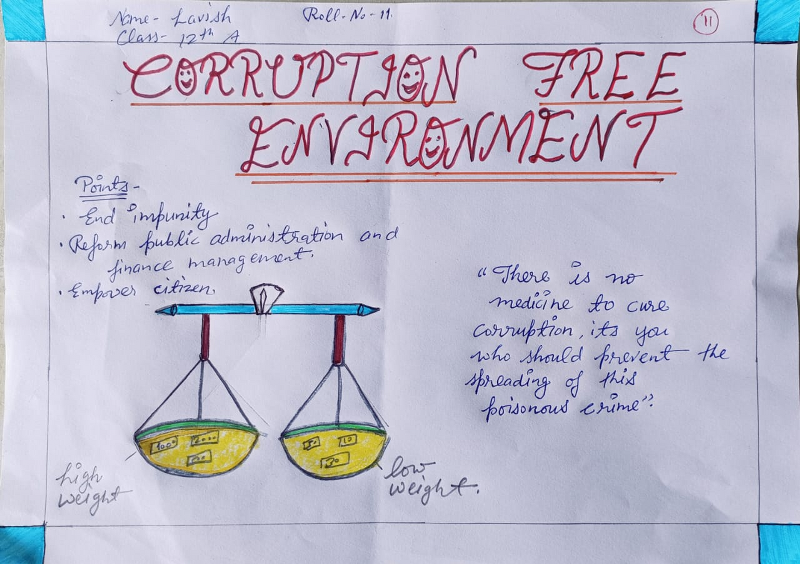 Name- Lavish
Roll-No-11.
11
Class- 12th A
CORRUPTION FREE
ENVIRONMENT
Points-
· End impunity
· Reform public administration and
finance management.
· Empower citizen.
"There is no
medicine to cure
corruption, its you
who should prevent the
spreading of this
poisonous crime".
1000 2000
500
50 10
20
high
weight
low
weight.